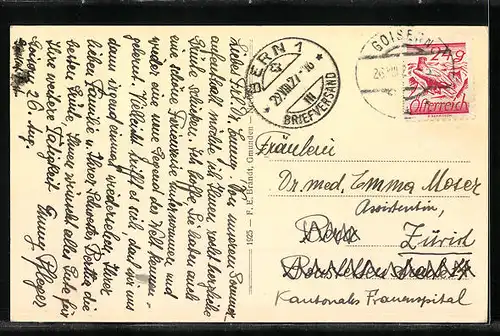 Liebes Frl. Dr. Emmy. Von unserem Sommer-
aufenthalt möchte ich Ihnen recht herzliche
Grüße schicken. Ich hoffe Sie haben auch
eine schöne Ferienreise unternommen und
wieder eine neue Gegend der Welt kennen
gelernt. Vielleicht trifft es sich, daß wir uns
dann irgend einmal wiedersehen. Ihrer
lieben Familie u. Ihrer Schwester Bertha die
besten Grüße, Ihnen wünscht alles Gute für
Ihre weitere Tätigkeit
Goisern, 26. Aug.
1925 - F. E. Brandt, Gmunden
BERN 1
27.VIII.27.-16
III
BRIEFVERSAND
GOISERN
26 VIII 27
24
Österreich
Fräulein
Dr. med. Emma Moser
Assistentin,
Bern
Zürich
Kantonales Frauenspital